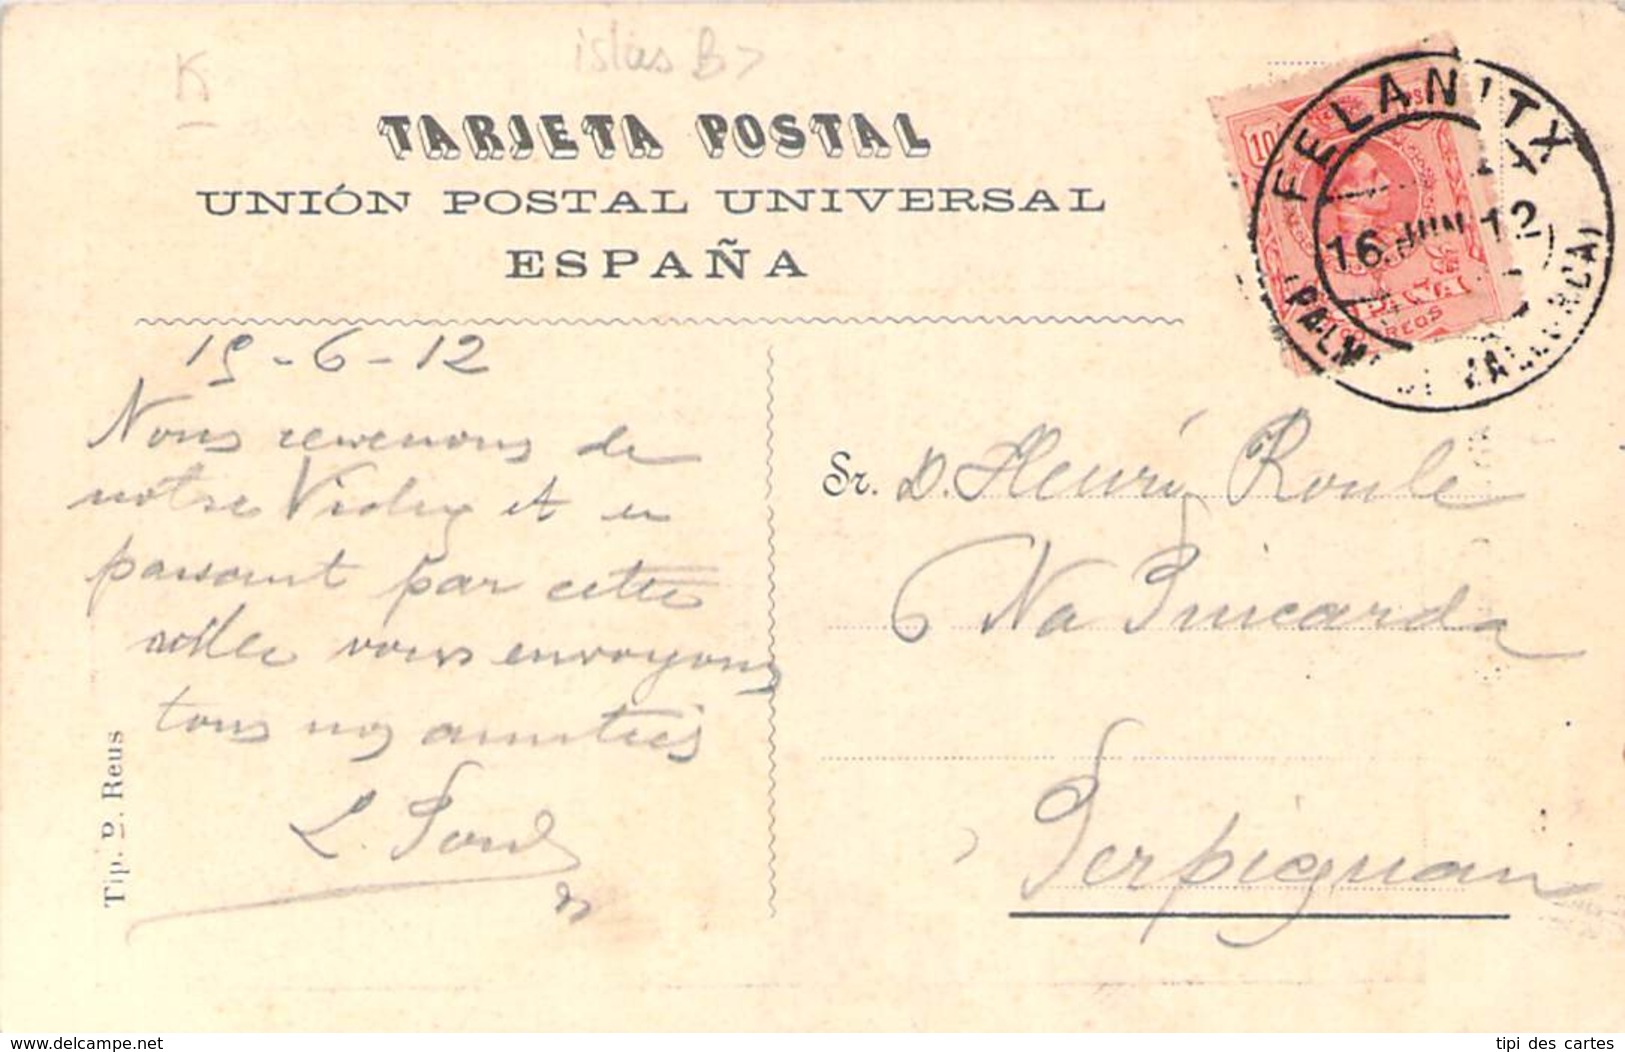 K
islas B
TARJETA POSTAL
UNIÓN POSTAL UNIVERSAL
ESPAÑA
10
CORREOS
FELANITX
16 JUN 12
(PALMA DE MALLORCA)
15-6-12
Nous revenons de
notre Vichy et en
passant par cette
ville vous envoyons
tous nos amitiés
L.
Sr. D. Henri Roule
Na
Perpignan
Tip. P. Reus
www.delcampe.net
tipi des cartes